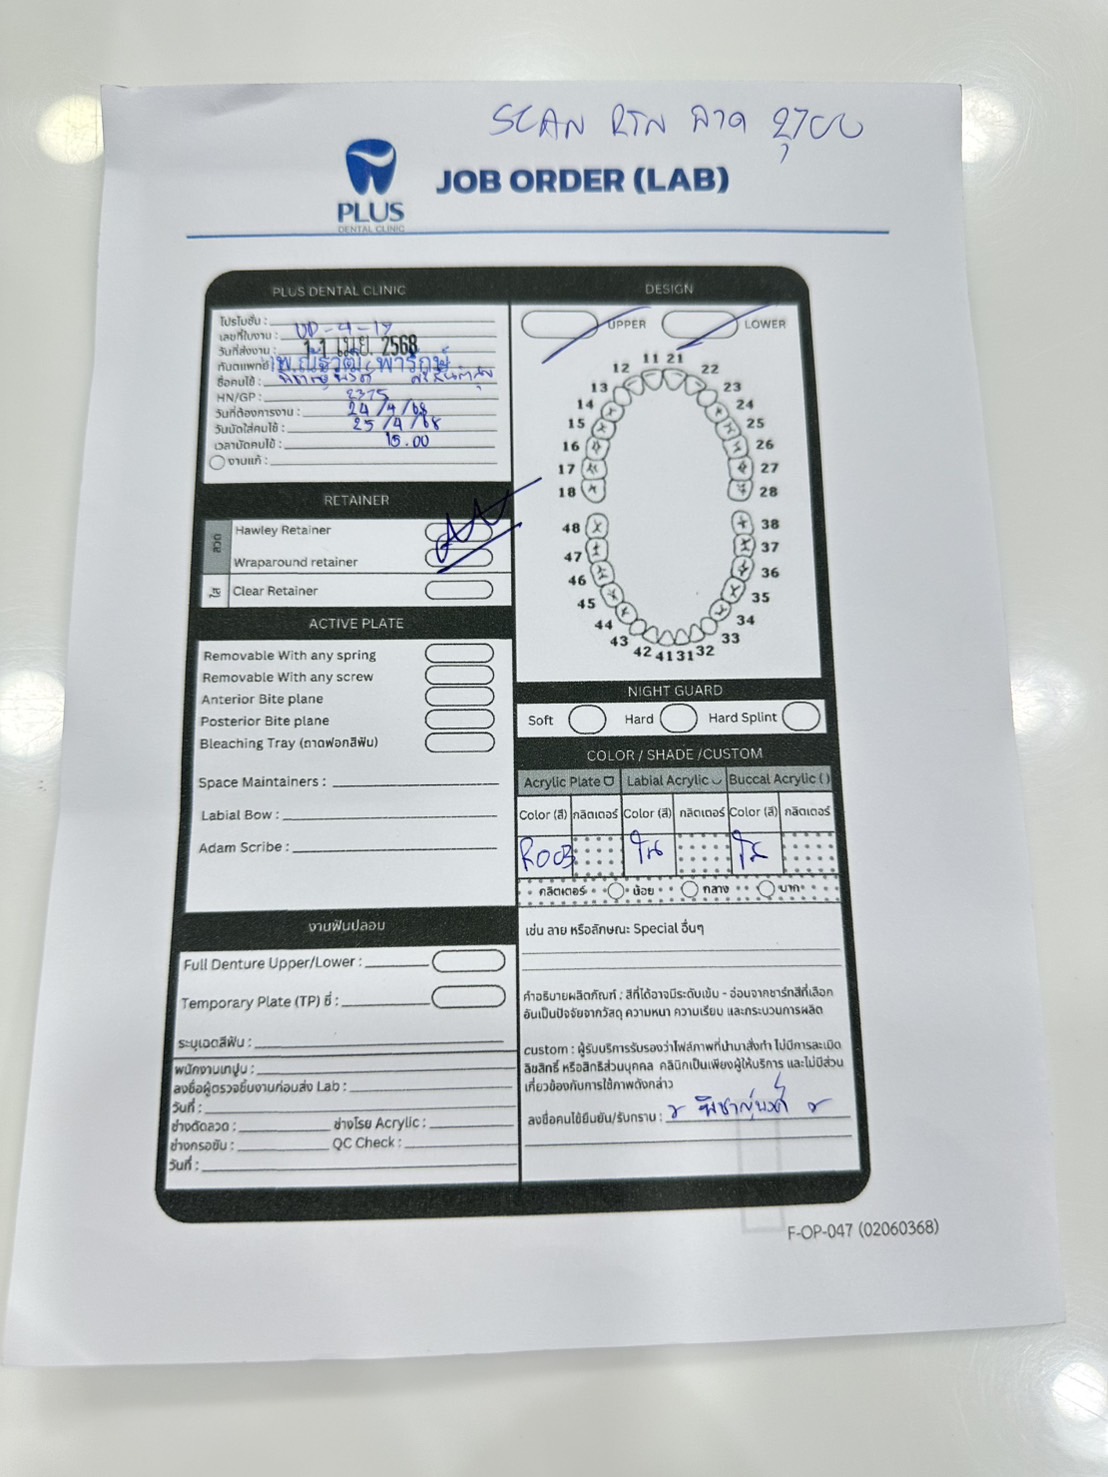 SCAN RTN ลวด
PLUS
DENTAL CLINIC
JOB ORDER (LAB)
PLUS DENTAL CLINIC
โปรโมชั่น :
เลขที่ใบงาน : UD-4-19
วันที่ส่งงาน : 11 เม.ย. 2568
ทันตแพทย์ : พ.ณัฐวุฒิ
ชื่อคนไข้ :
HN/GP : 2375
วันที่ต้องการงาน : 24/4/68
วันนัดใส่คนไข้ : 25/4/68
เวลานัดคนไข้ : 15.00
งานแก้ :
RETAINER
ลวด
Hawley Retainer
Wraparound retainer
ใส
Clear Retainer
ACTIVE PLATE
Removable With any spring
Removable With any screw
Anterior Bite plane
Posterior Bite plane
Bleaching Tray (ถาดฟอกสีฟัน)
Space Maintainers :
Labial Bow :
Adam Scribe :
งานฟันปลอม
Full Denture Upper/Lower :
Temporary Plate (TP) ซี่ :
ระบุเฉดสีฟัน :
พนักงานเทปูน :
ลงชื่อผู้ตรวจชิ้นงานก่อนส่ง Lab :
วันที่ :
ช่างดัดลวด : ช่างโรย Acrylic :
ช่างกรอขัน : QC Check :
วันที่ :
DESIGN
UPPER LOWER
11 21
12 22
13 23
14 24
15 25
16 26
17 27
18 28
48 38
47 37
46 36
45 35
44 34
43 33
42 41 31 32
NIGHT GUARD
Soft Hard Hard Splint
COLOR / SHADE /CUSTOM
Acrylic Plate Labial Acrylic Buccal Acrylic ( )
Color (สี) กลิตเตอร์ Color (สี) กลิตเตอร์ Color (สี) กลิตเตอร์
R003 ใส ใส
กลิตเตอร์ น้อย กลาง มาก
เช่น ลาย หรือลักษณะ Special อื่นๆ
คำอธิบายผลิตภัณฑ์ : สีที่ได้อาจมีระดับเข้ม - อ่อนจากชาร์ทสีที่เลือก
อันเป็นปัจจัยจากวัสดุ ความหนา ความเรียบ และกระบวนการผลิต
custom : ผู้รับบริการรับรองว่าไฟล์ภาพที่นำมาสั่งทำ ไม่มีการละเมิด
ลิขสิทธิ์ หรือสิทธิส่วนบุคคล คลินิกเป็นเพียงผู้ให้บริการ และไม่มีส่วน
เกี่ยวข้องกับการใช้ภาพดังกล่าว
ลงชื่อคนไข้ยืนยัน/รับทราบ :
F-OP-047 (02060368)